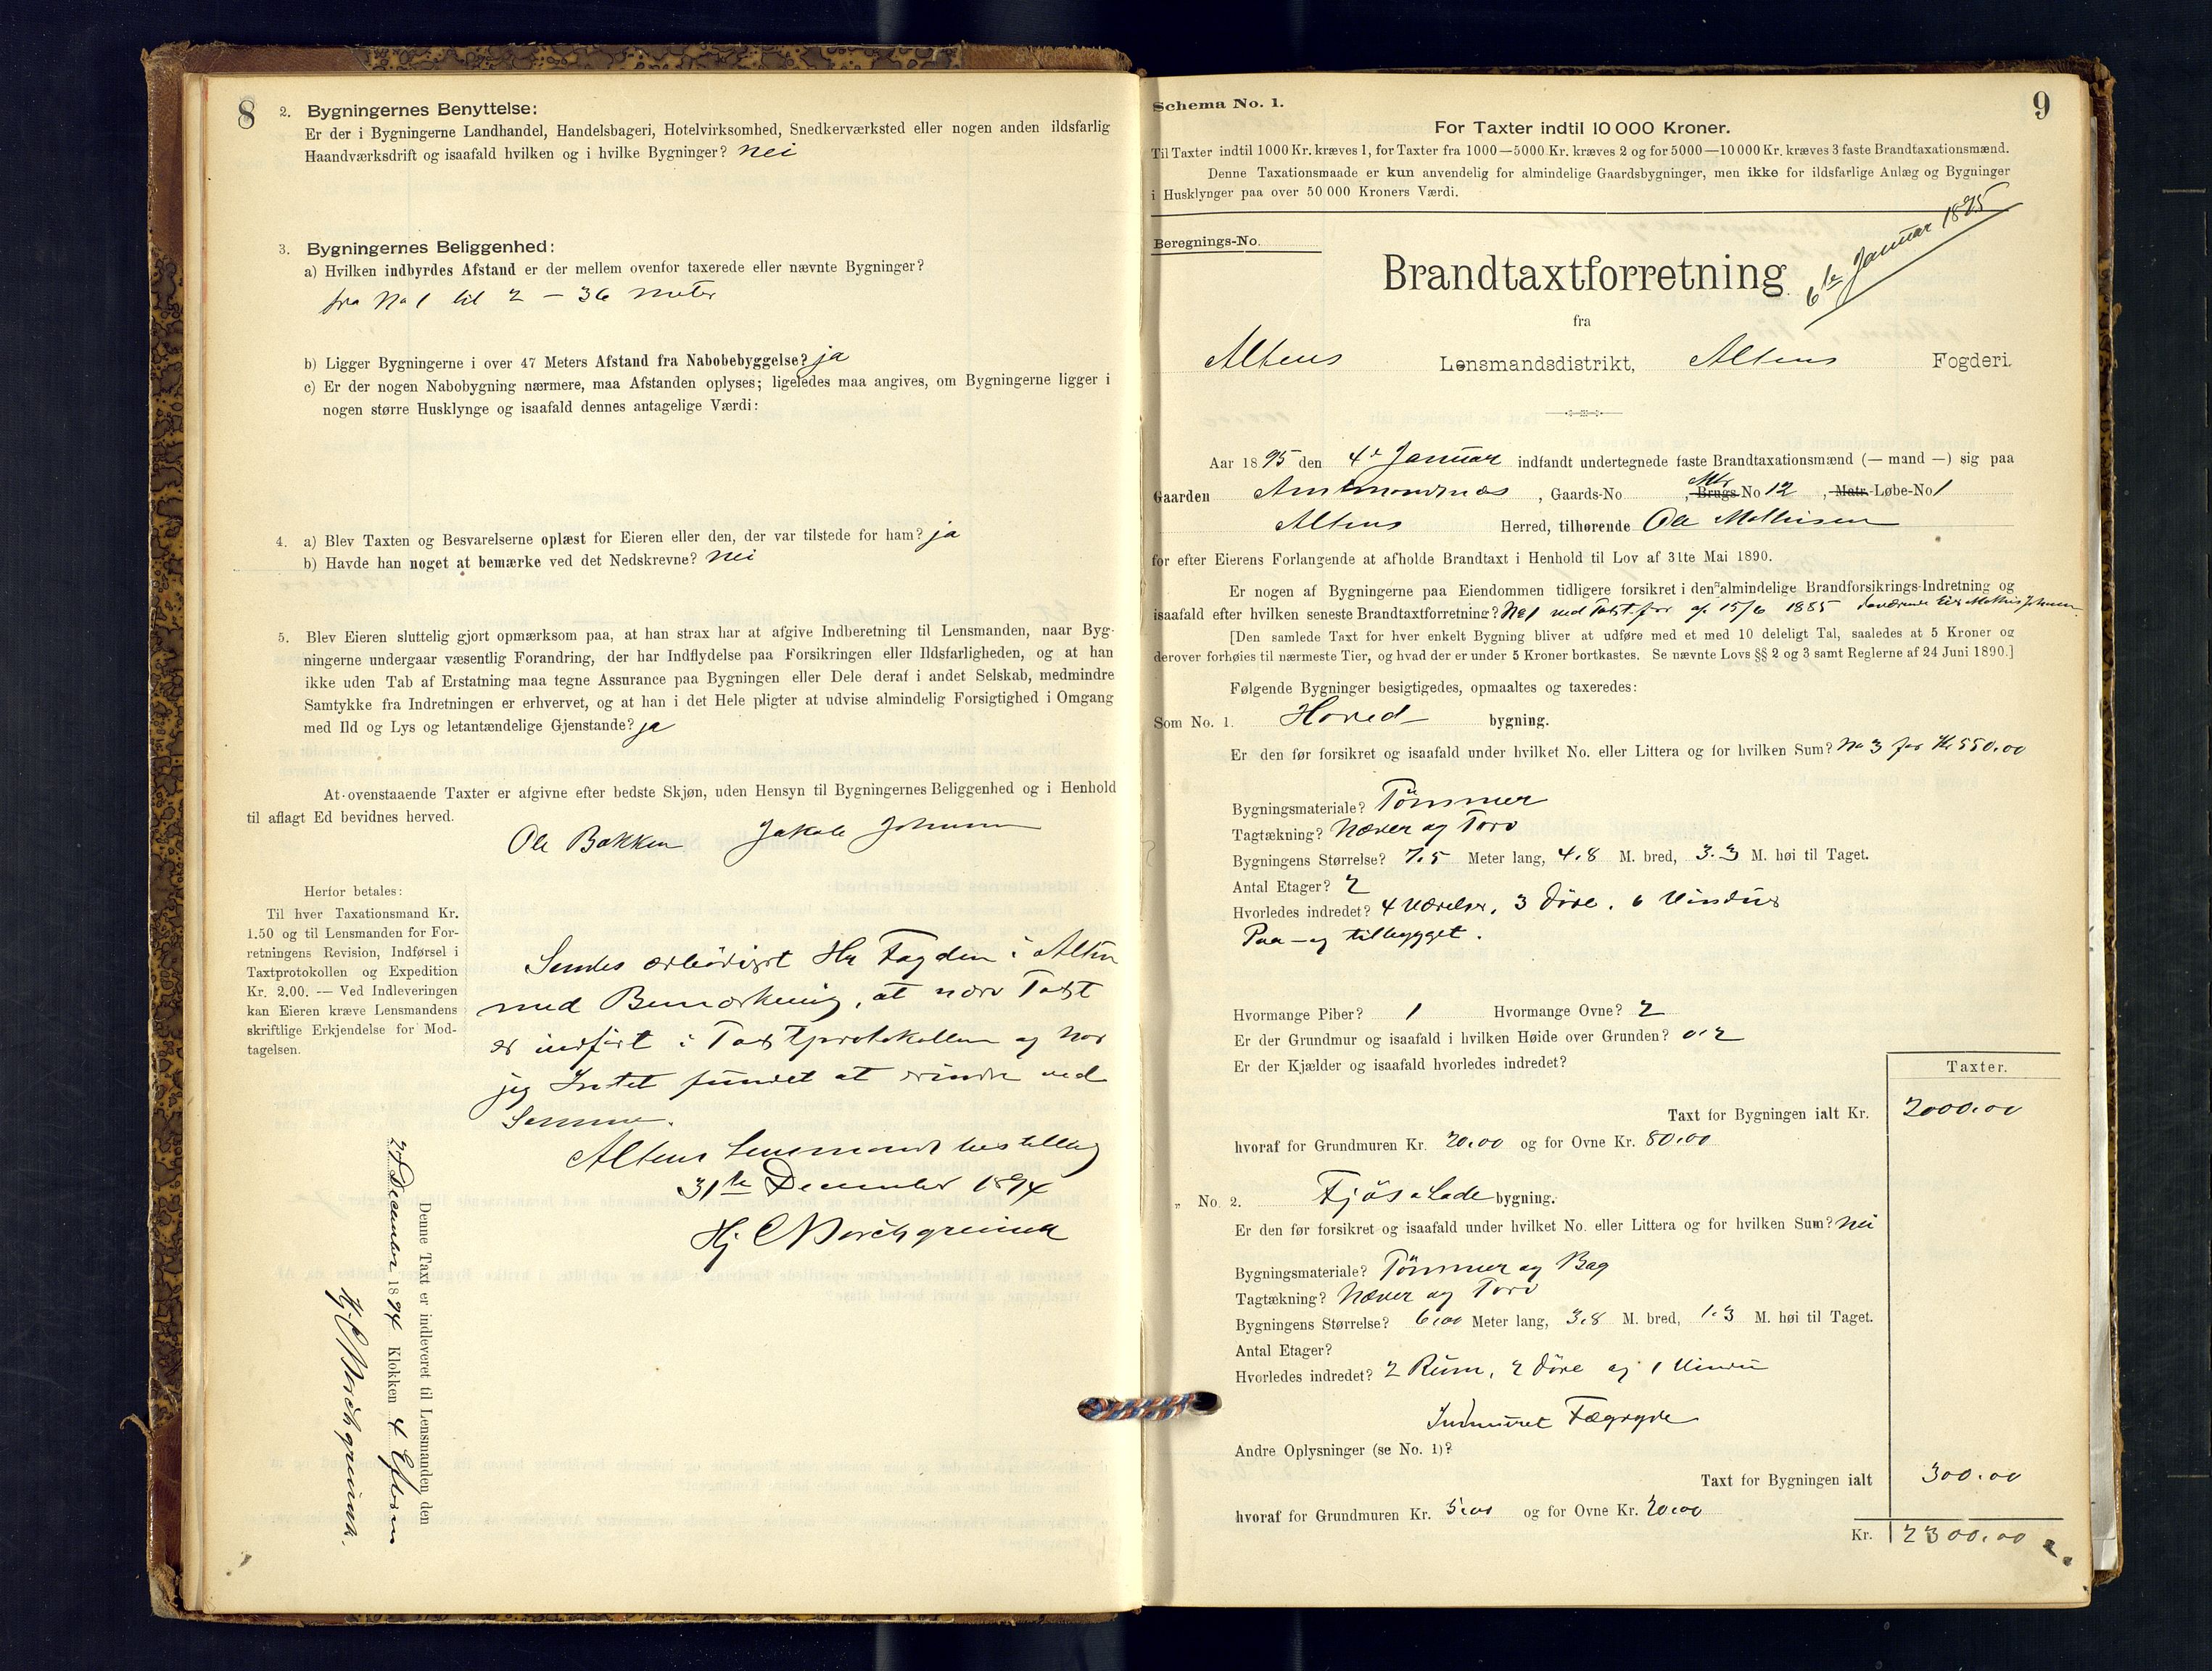 8
2. Bygningernes Benyttelse:
Er der i Bygningerne Landhandel, Handelsbageri, Hotelvirksomhed, Snedkerværksted eller nogen anden ildsfarlig
Haandværksdrift og isaafald hvilken og i hvilke Bygninger? nei
3. Bygningernes Beliggenhed:
a) Hvilken indbyrdes Afstand er der mellem ovenfor taxerede eller nævnte Bygninger?
fra No 1 til 2 – 36 Meter
b) Ligger Bygningerne i over 47 Meters Afstand fra Nabobebyggelse? ja
c) Er der nogen Nabobygning nærmere, maa Afstanden oplyses; ligeledes maa angives, om Bygningerne ligger i
nogen større Husklynge og isaafald dennes antagelige Værdi:
4. a) Blev Taxten og Besvarelserne oplæst for Eieren eller den, der var tilstede for ham? ja
b) Havde han noget at bemærke ved det Nedskrevne? nei
5. Blev Eieren sluttelig gjort opmærksom paa, at han strax har at afgive Indberetning til Lensmanden, naar Byg-
ningerne undergaar væsentlig Forandring, der har Indflydelse paa Forsikringen eller Ildsfarligheden, og at han
ikke uden Tab af Erstatning maa tegne Assurance paa Bygningen eller Dele deraf i andet Selskab, medmindre
Samtykke fra Indretningen er erhvervet, og at han i det Hele pligter at udvise almindelig Forsigtighed i Omgang
med Ild og Lys og letantændelige Gjenstande? ja
At ovenstaaende Taxter er afgivne efter bedste Skjøn, uden Hensyn til Bygningernes Beliggenhed og i Henhold
til aflagt Ed bevidnes herved.
Ole Bakken Jakob Johnsen
Herfor betales:
Til hver Taxationsmand Kr.
1.50 og til Lensmanden for For-
retningens Revision, Indførsel i
Taxtprotokollen og Expedition
Kr. 2.00. — Ved Indleveringen
kan Eieren kræve Lensmandens
skriftlige Erkjendelse for Mod-
tagelsen.
Sendes ærbødigst Hr Fogden i Alten
med Bemærkning, at nærv Taxt
er indført i Taxtprotokollen og har
jeg Intet fundet at erindre ved
Samme.
Altens Lensmandsbestilling
31te December 1894
Denne Taxt er indleveret til Lensmanden den
December 1894 Klokken 4 Efterm
Schema No. 1.
9
For Taxter indtil 10 000 Kroner.
Til Taxter indtil 1000 Kr. kræves 1, for Taxter fra 1000—5000 Kr. kræves 2 og for 5000—10 000 Kr. kræves 3 faste Brandtaxationsmænd.
Denne Taxationsmaade er kun anvendelig for almindelige Gaardsbygninger, men ikke for ildsfarlige Anlæg og Bygninger
i Husklynger paa over 50 000 Kroners Værdi.
Beregnings-No.
6te Januar 1895
Brandtaxtforretning
fra
Altens Lensmandsdistrikt, Altens Fogderi.
Aar 1895 den 4de Januar indfandt undertegnede faste Brandtaxationsmænd (— mand —) sig paa
Gaarden Amtmandsnæs, Gaards-No , Brugs Mtr No 12, Matr.-Løbe-No 1
Altens Herred, tilhørende Ole Mathisen
for efter Eierens Forlangende at afholde Brandtaxt i Henhold til Lov af 31te Mai 1890.
Er nogen af Bygningerne paa Eiendommen tidligere forsikret i den almindelige Brandforsikrings-Indretning og
isaafald efter hvilken seneste Brandtaxtforretning? No 1 ved Taxt.for af 15/6 1885 daværende Eier Mathis Johnsen
[Den samlede Taxt for hver enkelt Bygning bliver at udføre med et med 10 deleligt Tal, saaledes at 5 Kroner og
derover forhøies til nærmeste Tier, og hvad der er under 5 Kroner bortkastes. Se nævnte Lovs §§ 2 og 3 samt Reglerne af 24 Juni 1890.]
Følgende Bygninger besigtigedes, opmaaltes og taxeredes:
Som No. 1. Hoved- bygning.
Er den før forsikret og isaafald under hvilket No. eller Littera og for hvilken Sum? No 3 for Kr 550.00
Bygningsmateriale? Tömmer
Tagtækning? Næver og Torv
Bygningens Størrelse? 7.5 Meter lang, 4.8 M. bred, 3.3 M. høi til Taget.
Antal Etager? 2
Hvorledes indredet? 4 Værelser, 3 Döre, 6 Vinduer
Paa- og tilbygget.
Hvormange Piber? 1 Hvormange Ovne? 2
Er der Grundmur og isaafald i hvilken Høide over Grunden? 0.2
Er der Kjælder og isaafald hvorledes indredet?
Taxter.
Taxt for Bygningen ialt Kr. 2000.00
hvoraf for Grundmuren Kr. 20.00 og for Ovne Kr. 80.00
„ No. 2. Fjös & Lade bygning.
Er den før forsikret og isaafald under hvilket No. eller Littera og for hvilken Sum? nei
Bygningsmateriale? Tömmer og Bag
Tagtækning? Næver og Torv
Bygningens Størrelse? 6.00 Meter lang, 3.8 M. bred, 1.3 M. høi til Taget.
Antal Etager?
Hvorledes indredet? 2 Rum, 2 Döre og 1 Vindu
Indmuret Fægryde
Andre Oplysninger (se No. 1)?
Taxt for Bygningen ialt 300.00
hvoraf for Grundmuren Kr. 5.00 og for Ovne Kr. 20.00
Kr. 2300.00